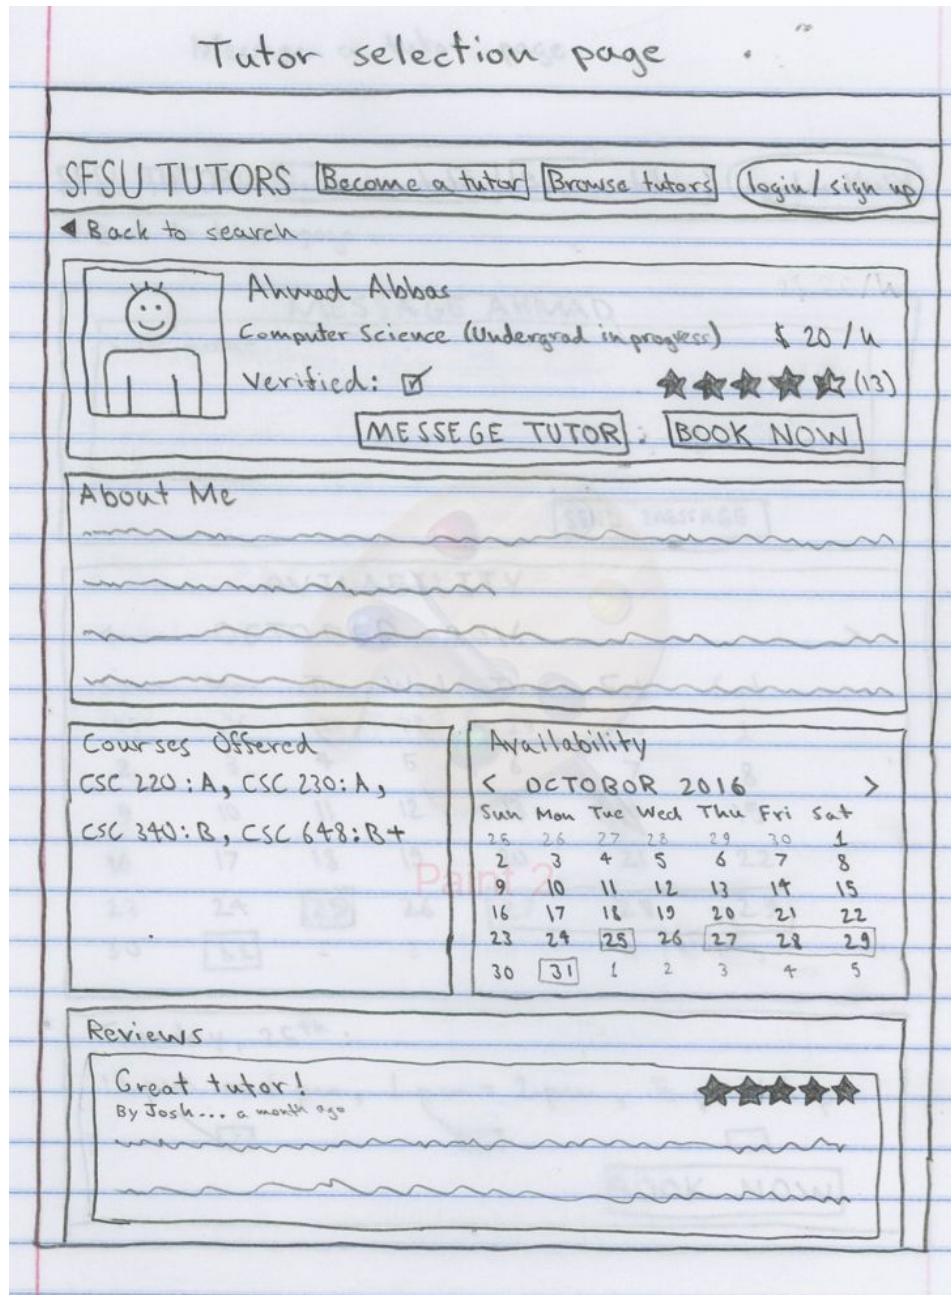 Tutor selection page
SFSU TUTORS Become a tutor Browse tutors login/sign up
◀ Back to search
Ahmad Abbas
Computer Science (Undergrad in progress) $ 20/h
Verified: ☑ (13)
MESSEGE TUTOR BOOK NOW
About Me
Courses Offered
CSC 220:A, CSC 230:A,
CSC 340:B, CSC 648:B+
Availability
< OCTOBOR 2016 >
Sun Mon Tue Wed Thu Fri Sat
25 26 27 28 29 30 1
2 3 4 5 6 7 8
9 10 11 12 13 14 15
16 17 18 19 20 21 22
23 24 25 26 27 28 29
30 31 1 2 3 4 5
Paint 2
Reviews
Great tutor!
By Josh... a month ago